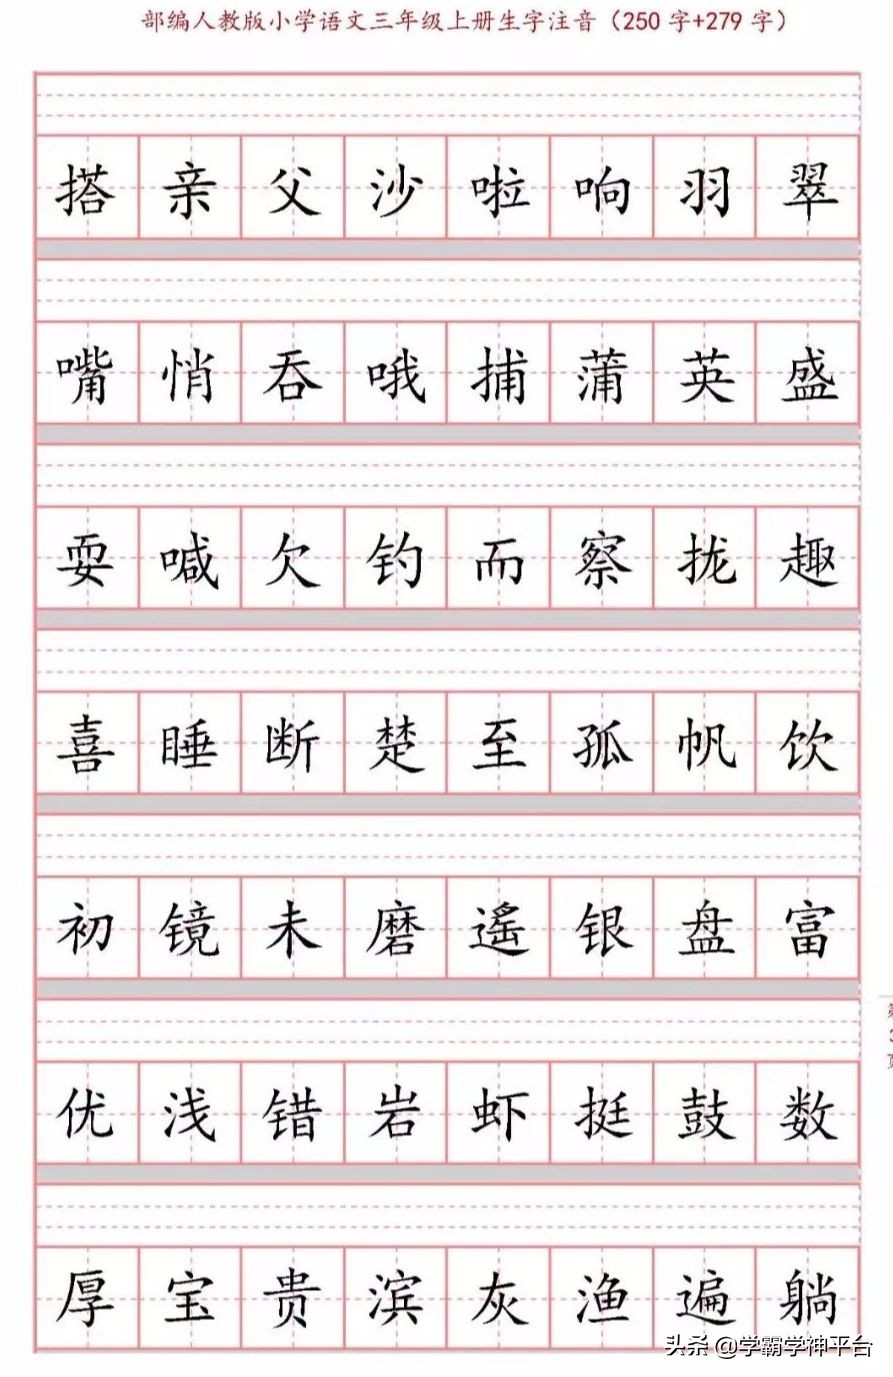 部编人教版小学语文三年级上册生字注音（250 字+279 字）
搭 亲 父 沙 啦 响 羽 翠
嘴 悄 吞 哦 捕 蒲 英 盛
耍 喊 欠 钓 而 察 拢 趣
喜 睡 断 楚 至 孤 帆 饮
初 镜 未 磨 遥 银 盘 富
优 浅 错 岩 虾 挺 鼓 数
厚 宝 贵 滨 灰 渔 遍 躺
头条 @学霸学神平台